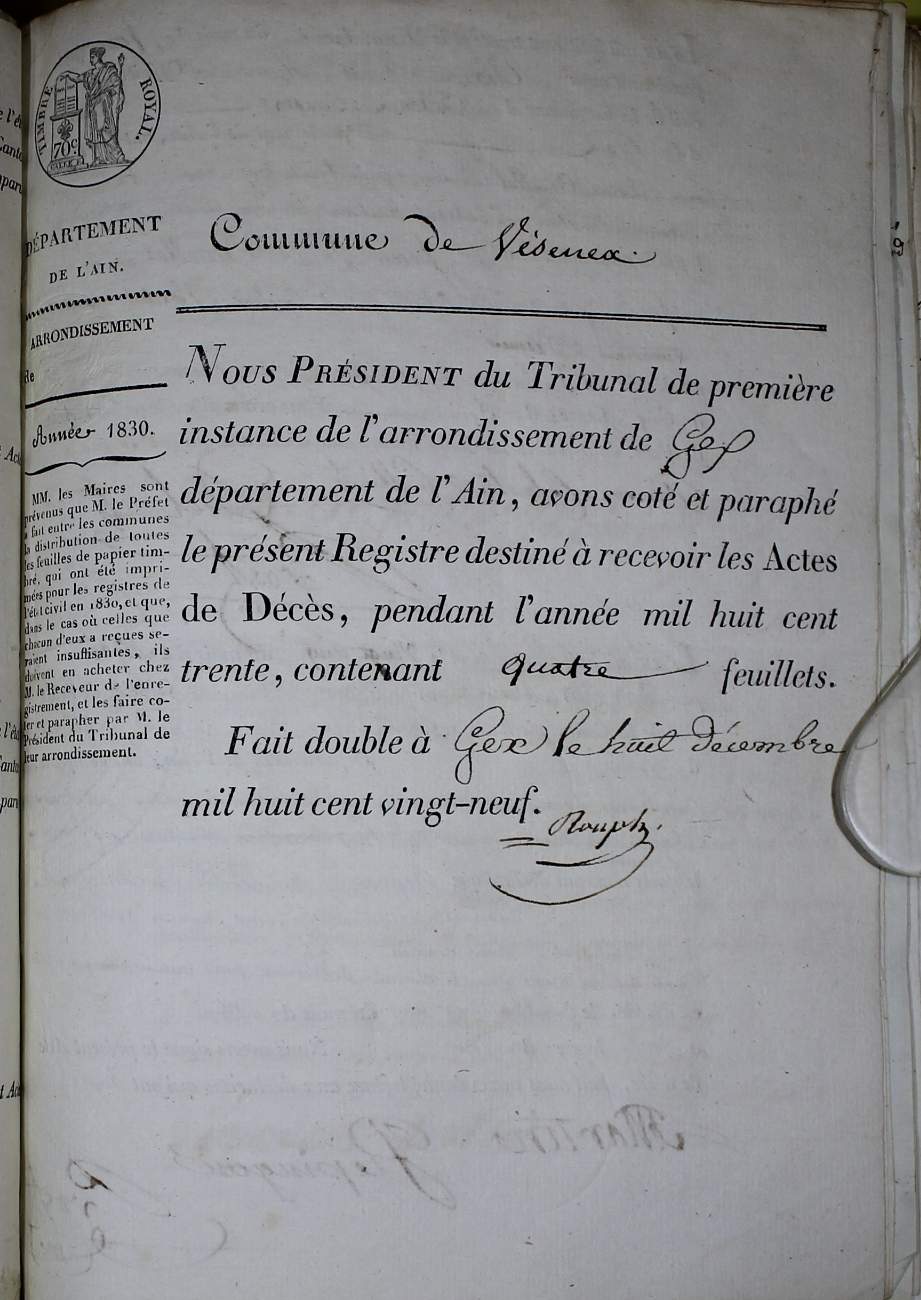 TIMBRE ROYAL.
70c
DÉPARTEMENT
DE L'AIN.
ARRONDISSEMENT
de
Année 1830.
MM. les Maires sont
prévenus que M. le Préfet
a fait entre les communes
la distribution de toutes
les feuilles de papier tim-
bré, qui ont été impri-
mées pour les registres de
l'état civil en 1830, et que,
dans le cas où celles que
chacun d'eux a reçues se-
raient insuffisantes, ils
doivent en acheter chez
M. le Receveur de l'enre-
gistrement, et les faire co-
ter et parapher par M. le
Président du Tribunal de
leur arrondissement.
Commune de Vésenex.
NOUS PRÉSIDENT du Tribunal de première
instance de l'arrondissement de Gex
département de l'Ain, avons coté et paraphé
le présent Registre destiné à recevoir les Actes
de Décès, pendant l'année mil huit cent
trente, contenant quatre feuillets.
Fait double à Gex le huit décembre
mil huit cent vingt-neuf.